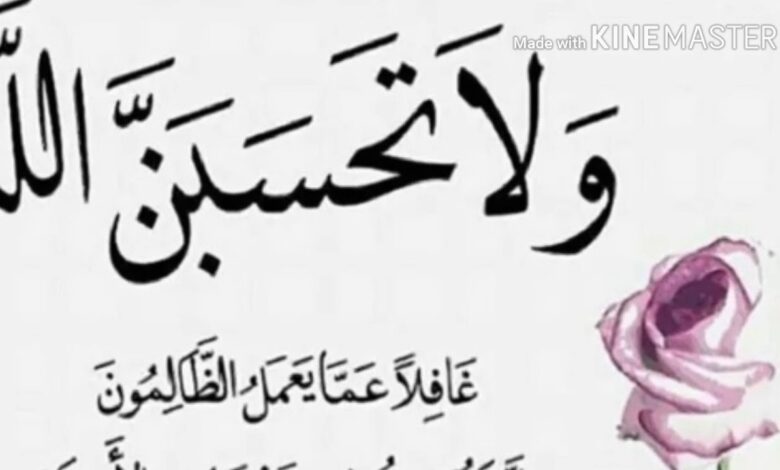 Made with KINEMASTER
وَلَا تَحْسَبَنَّ اللَّ
غَافِلاً عَمَّا يَعْمَلُ الظَّالِمُونَ